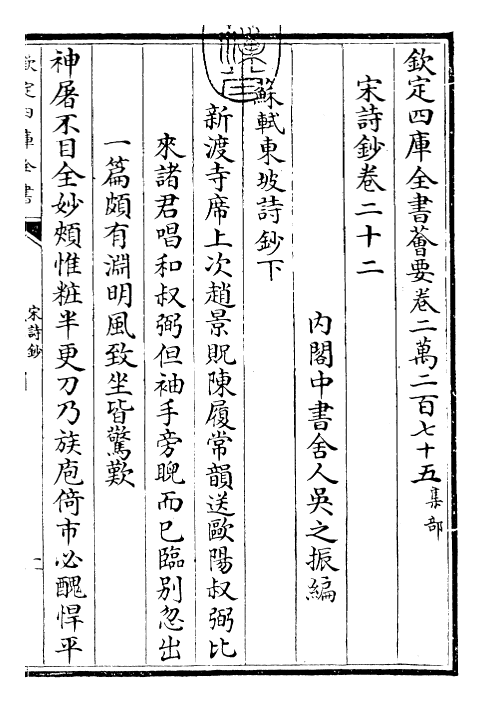 欽定四庫全書薈要卷二萬二百七十五集部
宋詩鈔卷二十二
內閣中書舍人吳之振編
蘇軾東坡詩鈔下
新渡寺席上次趙景貺陳履常韻送歐陽叔弼比
來諸君唱和叔弼但袖手旁睨而已臨别忽出
一篇頗有淵明風致坐皆驚歎
神屠不目全妙頰惟粧半更刀乃族庖倚市必醜悍平
欽定四庫全書
宋詩鈔